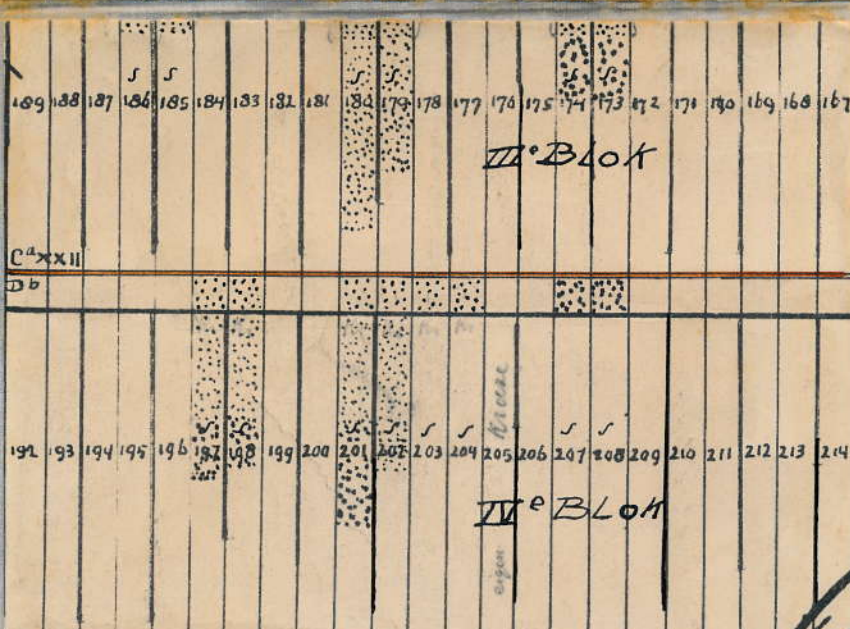 ſ ſ ſ ſ ſ ſ
189 188 187 186 185 184 183 182 181 180 179 178 177 176 175 174 173 172 171 170 169 168 167
IIIe BLOK
Ca XXII
Db
Kruse
ſ ſ ſ ſ ſ ſ ſ ſ
192 193 194 195 196 197 198 199 200 201 202 203 204 205 206 207 208 209 210 211 212 213 214
IVe BLOK
eigen